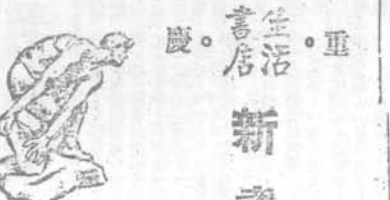 重・生活書店・慶
新